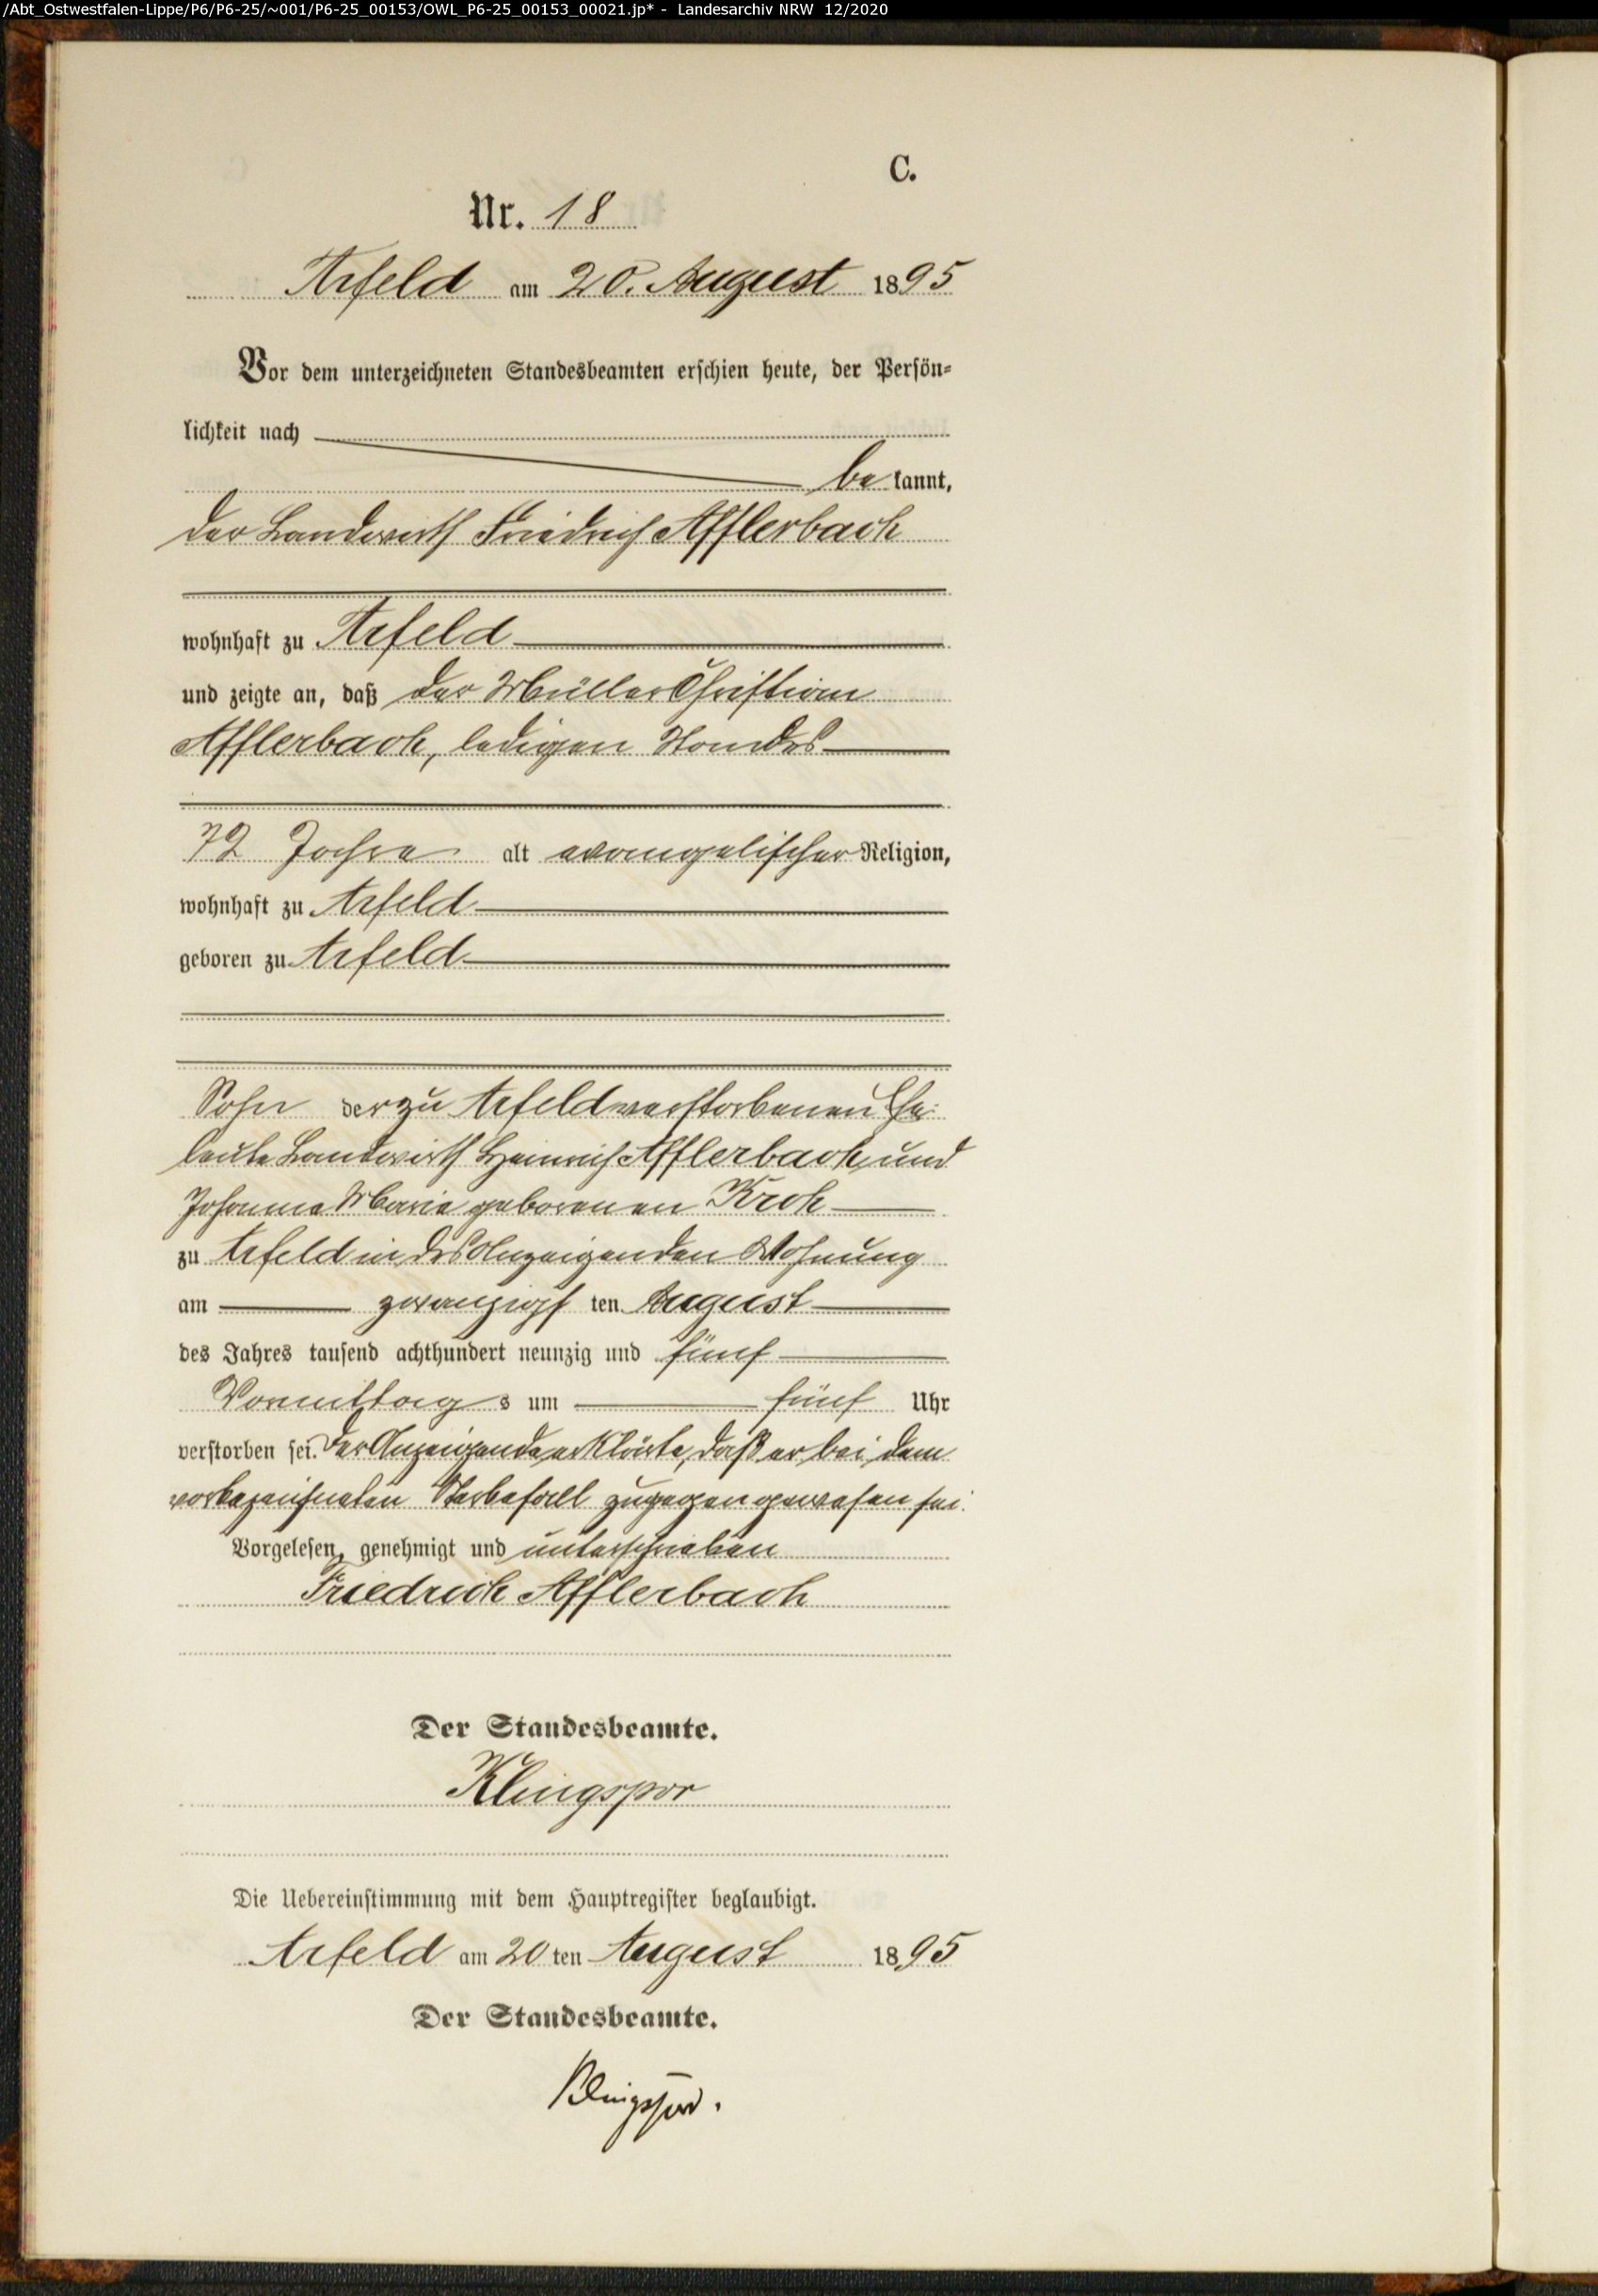 /Abt_Ostwestfalen-Lippe/P6/P6-25/~001/P6-25_00153/OWL_P6-25_00153_00021.jp* - Landesarchiv NRW 12/2020
C.
Nr. 18
Arfeld am 20. August 1895
Vor dem unterzeichneten Standesbeamten erschien heute, der Persön-
lichkeit nach
be kannt,
der Landwirth Friedrich Afflerbach
wohnhaft zu Arfeld
und zeigte an, daß der Müller Christian
Afflerbach, ledigen Standes
72 Jahre alt evangelischer Religion,
wohnhaft zu Arfeld
geboren zu Arfeld
Sohn der zu Arfeld verstorbenen Ehe-
leute Landwirth Heinrich Afflerbach und
Johanna Maria geborenen Kroh
zu Arfeld in des Anzeigenden Wohnung
am zwanzigs ten August
des Jahres tausend achthundert neunzig und fünf
Vormittag s um fünf Uhr
verstorben sei. Der Anzeigende erklärte, daß er bei dem
vorbezeichneten Sterbefall zugegen gewesen sei.
Vorgelesen, genehmigt und unterschrieben
Friedrich Afflerbach
Der Standesbeamte.
Klingspor
Die Uebereinstimmung mit dem Hauptregister beglaubigt.
Arfeld am 20 ten August 1895
Der Standesbeamte.
Klingspor.